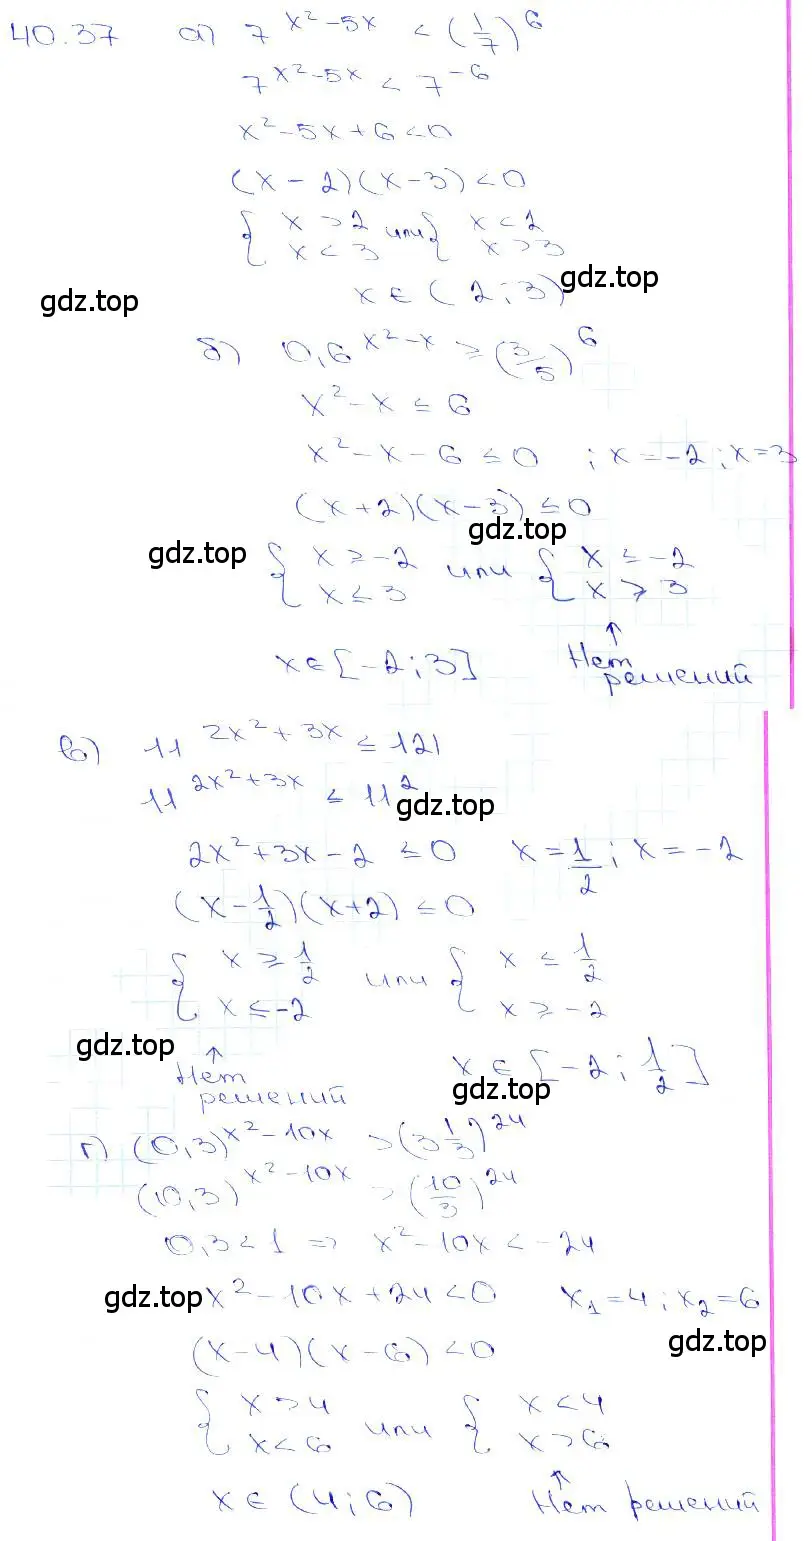 40.37 а) 7^{x²-5x} < (1/7)^6
7^{x²-5x} < 7^{-6}
x²-5x+6<0
(x-2)(x-3)<0
{ x>2 x<3 или { x<2 x>3
x∈(2;3)
gdz.top
gdz.top
б) 0,6^{x²-x} ≥ (3/5)^6
x²-x ≤ 6
x²-x-6 ≤ 0 ; x=-2; x=3
(x+2)(x-3) ≤ 0
gdz.top
gdz.top
{ x ≥ -2 x ≤ 3 или { x ≤ -2 x ≥ 3
↑
x∈[-2;3] Нет решений
в) 11^{2x²+3x} ≤ 121
11^{2x²+3x} ≤ 11²
gdz.top
2x²+3x-2 ≤ 0 x=1/2; x=-2
(x-1/2)(x+2) ≤ 0
{ x ≥ 1/2 x ≤ -2 или { x ≤ 1/2 x ≥ -2
gdz.top
↑
Нет решений x∈[-2; 1/2]
gdz.top
г) (0,3)^{x²-10x} > (3 1/3)^{24}
(0,3)^{x²-10x} > (10/3)^{24}
0,3<1 => x²-10x < -24
gdz.top x²-10x+24<0 x₁=4; x₂=6
gdz.top
(x-4)(x-6)<0
{ x>4 x<6 или { x<4 x>6
↑
x∈(4;6) Нет решений